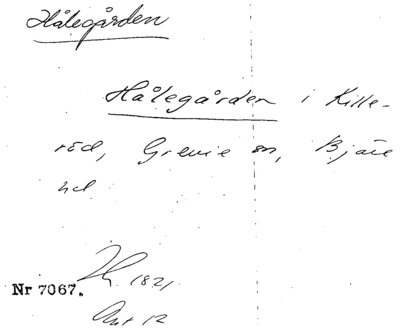 Hålegården
Hålegården i Kille-
röd, Grevie sn, Bjäre
hd
1821
Nr 7067.
Ant 12